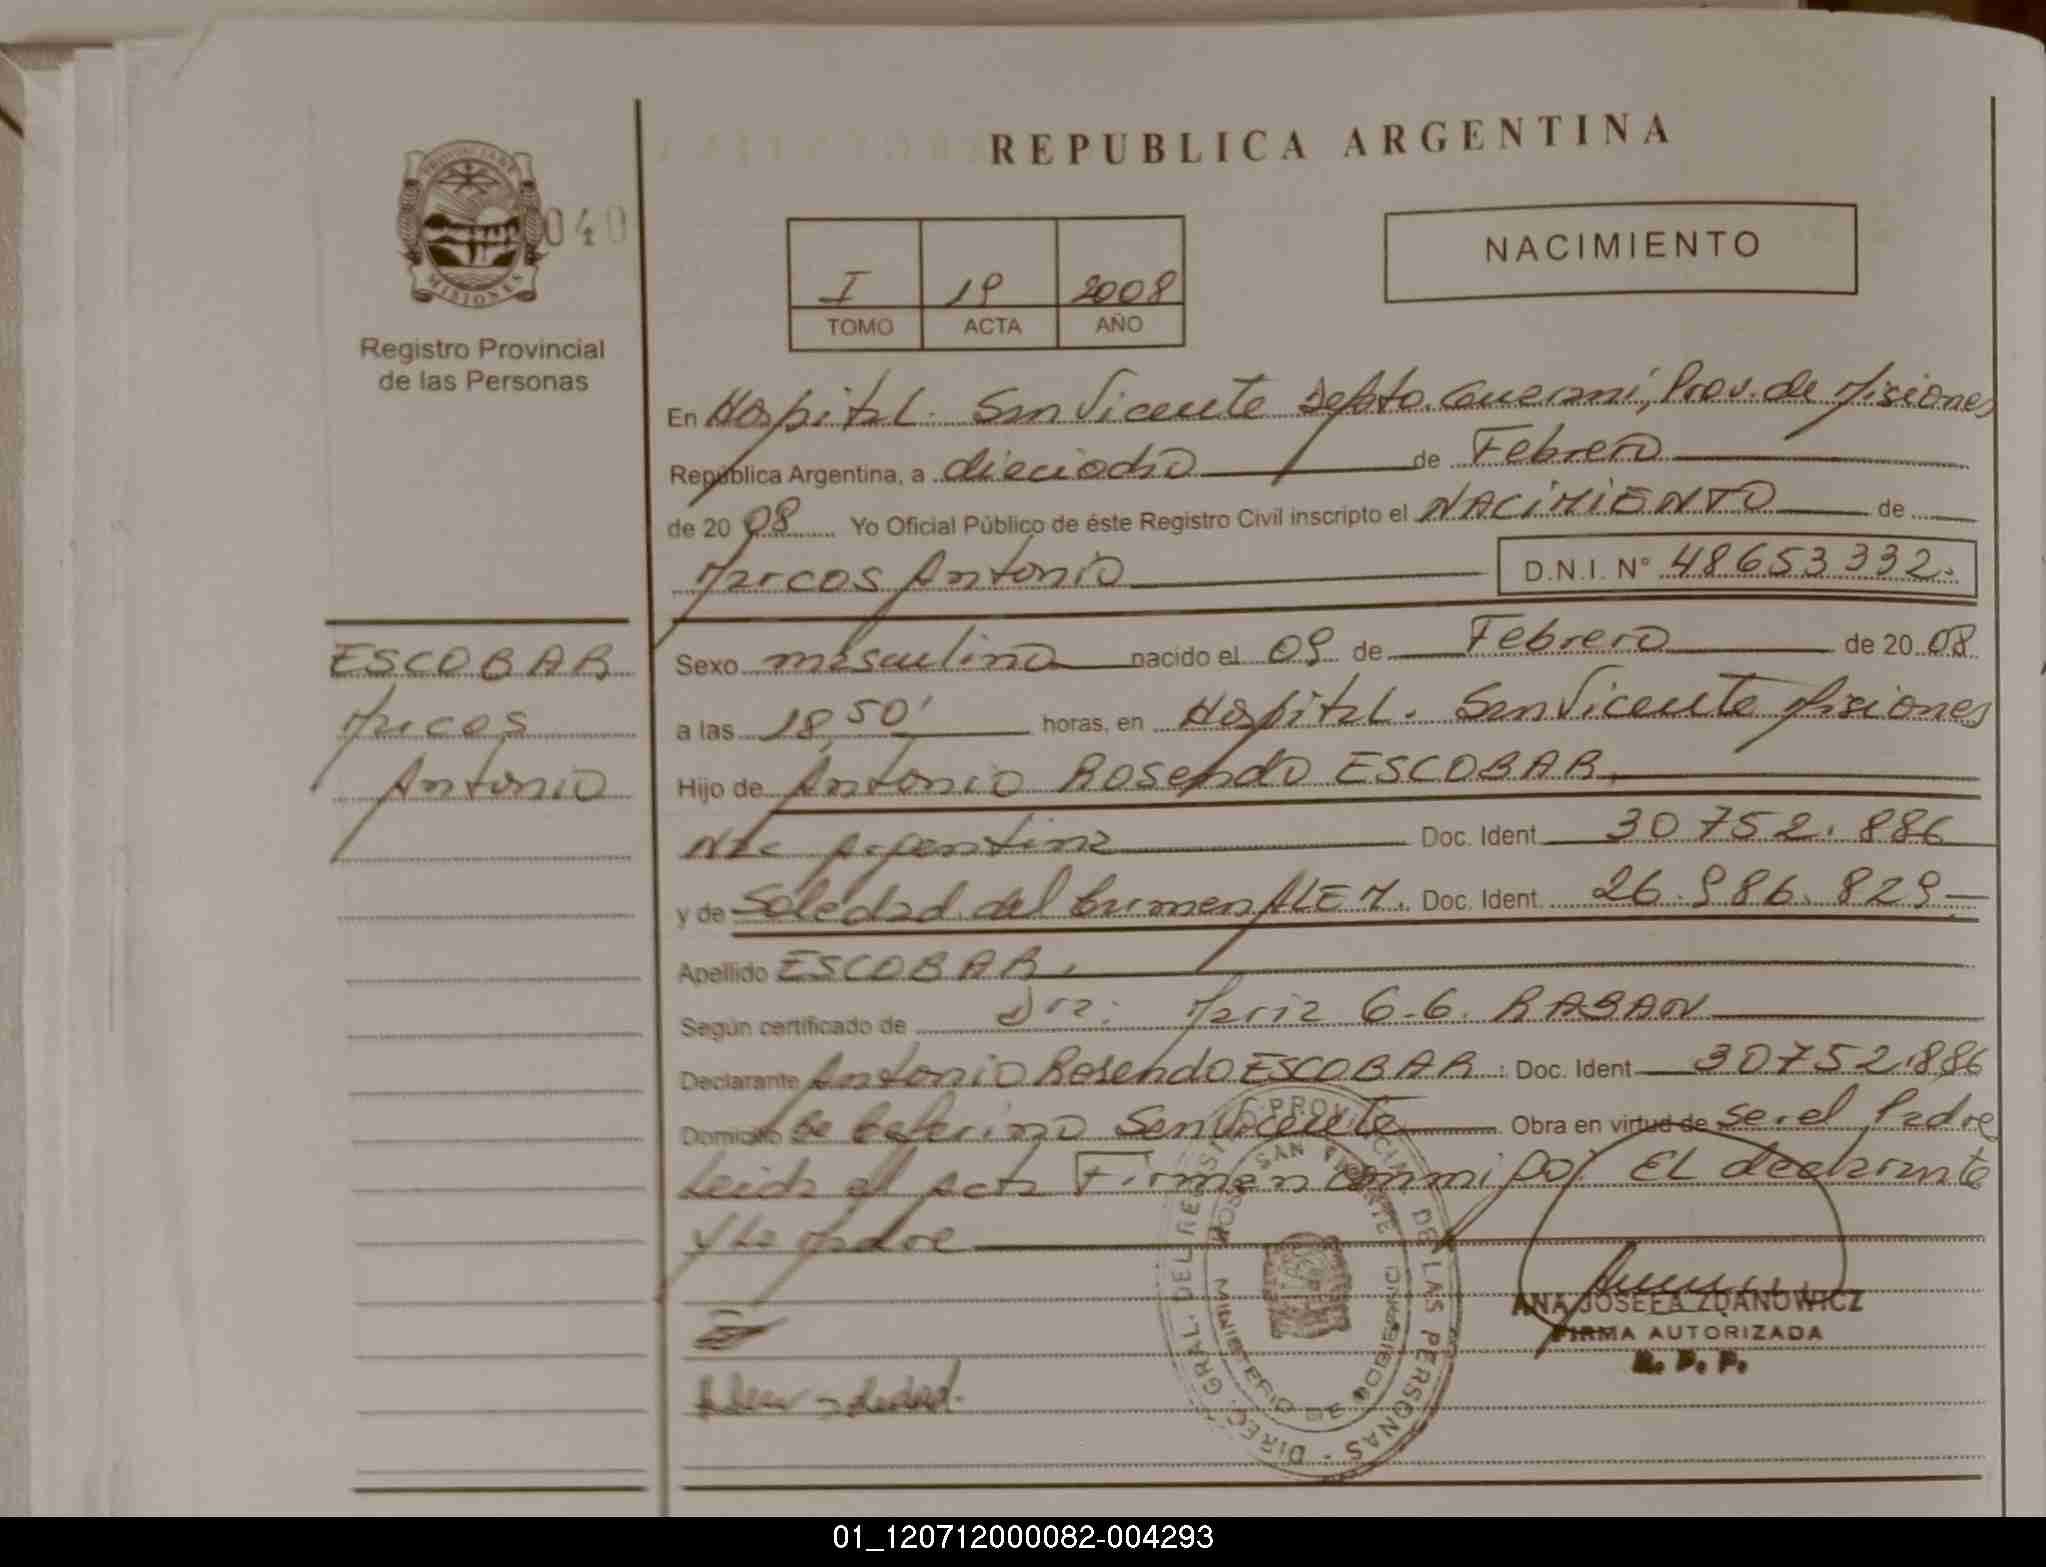 REPUBLICA ARGENTINA
PROVINCIA DE
MISIONES
040
Registro Provincial
de las Personas
NACIMIENTO
I 19 2008
TOMO ACTA AÑO
En Hospital. San Vicente Depto. Guarani, Prov. de Misiones
República Argentina, a dieciocho de Febrero
de 20 08 Yo Oficial Público de éste Registro Civil inscripto el NACIMIENTO de
Marcos Antonio D.N.I. N° 48653332.
ESCOBAR
Marcos
Antonio
Sexo masculino nacido el 09 de Febrero de 20 08
a las 18,50' horas, en Hospital. San Vicente Misiones
Hijo de Antonio Rosendo ESCOBAR,
Nac Argentina Doc. Ident 30752.886
y de Soledad del Carmen ALEM. Doc. Ident. 26.986.829
Apellido ESCOBAR,
Según certificado de Dra: Maria G.G. RABAN
Declarante Antonio Rosendo ESCOBAR : Doc. Ident 30752.886
Domicilio San Vicente Obra en virtud de ser el Padre
Leida el Acta Firman El declarante
y La Madre
DIREC. GRAL. DEL REGISTRO PROVINCIAL DE LAS PERSONAS
HOSP. SAN VICENTE
MINISTERIO DE GOBIERNO
ANA JOSEFA ZDANOWICZ
FIRMA AUTORIZADA
R. P. P.
01_120712000082-004293